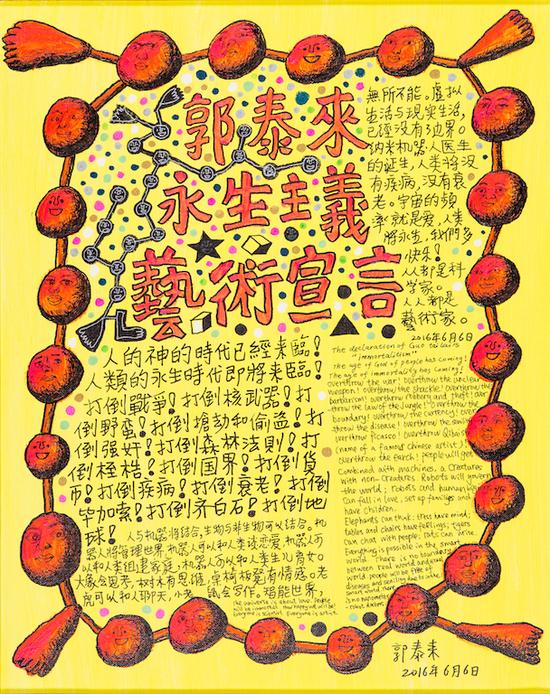 郭泰來
永生主義
藝術宣言
無所不能。虛拟
生活与現实生活,
已經没有边界。
纳米机器人医生
的诞生,人类将没
有疾病,没有衰
老。宇宙的頻
率就是爱,人类
将永生,我們多
快乐!
人人都是科
学家。
人人都是
藝術家。
2016年6月6日
人的神的時代已經来臨!
人類的永生時代即將来臨!
打倒戰爭!打倒核武器!打
倒野蛮!打倒搶劫和偷盗!打
倒强奸!打倒森林法則!打
倒桎梏!打倒国界!打倒貨
币!打倒疾病!打倒衰老!打倒
毕加索!打倒齐白石!打倒地
球!
人与机器將結合,生物与非生物可以結合。机
器人將管理世界,机器人可以和人类谈恋爱,机器人可
以和人类组建家庭,机器人可以和人类生儿育女。
大象会思考,树林有思维,桌椅板凳有情感。老
虎可以和人聊天,小老鼠会写作。智能世界,
The declaration of Guo tai lai's
"immortalism"
The age of God's people has coming!
The age of immortality has coming!
overthrow the war! overthrow the nuclear
weapon! overthrow the shackle! overthrow the
barbarism! overthrow robbery and theft! over
throw the law of the jungle! overthrow the
boundary! overthrow the currency! over
throw the disease! overthrow the
overthrow picasso! overthrow Qibaishi
(name of a famous Chinese artist)!
overthrow the earth! people will get
Combined with machines, a Creatures
with non-creatures. Robots will govern
the world; robots and human
can fall in love, set up families and
have children.
Elephants can think; trees have mind;
tables and chairs have feelings; tigers
can chat with people; rats can write.
Everything is possible in the smart
world. There is no boundary
between real world and
world. people will be free of
diseases and
The universe is about love. People
will be immortal. How happy we will be!
Everyone is scientist. Everyone is artist.
郭泰来
2016年6月6日